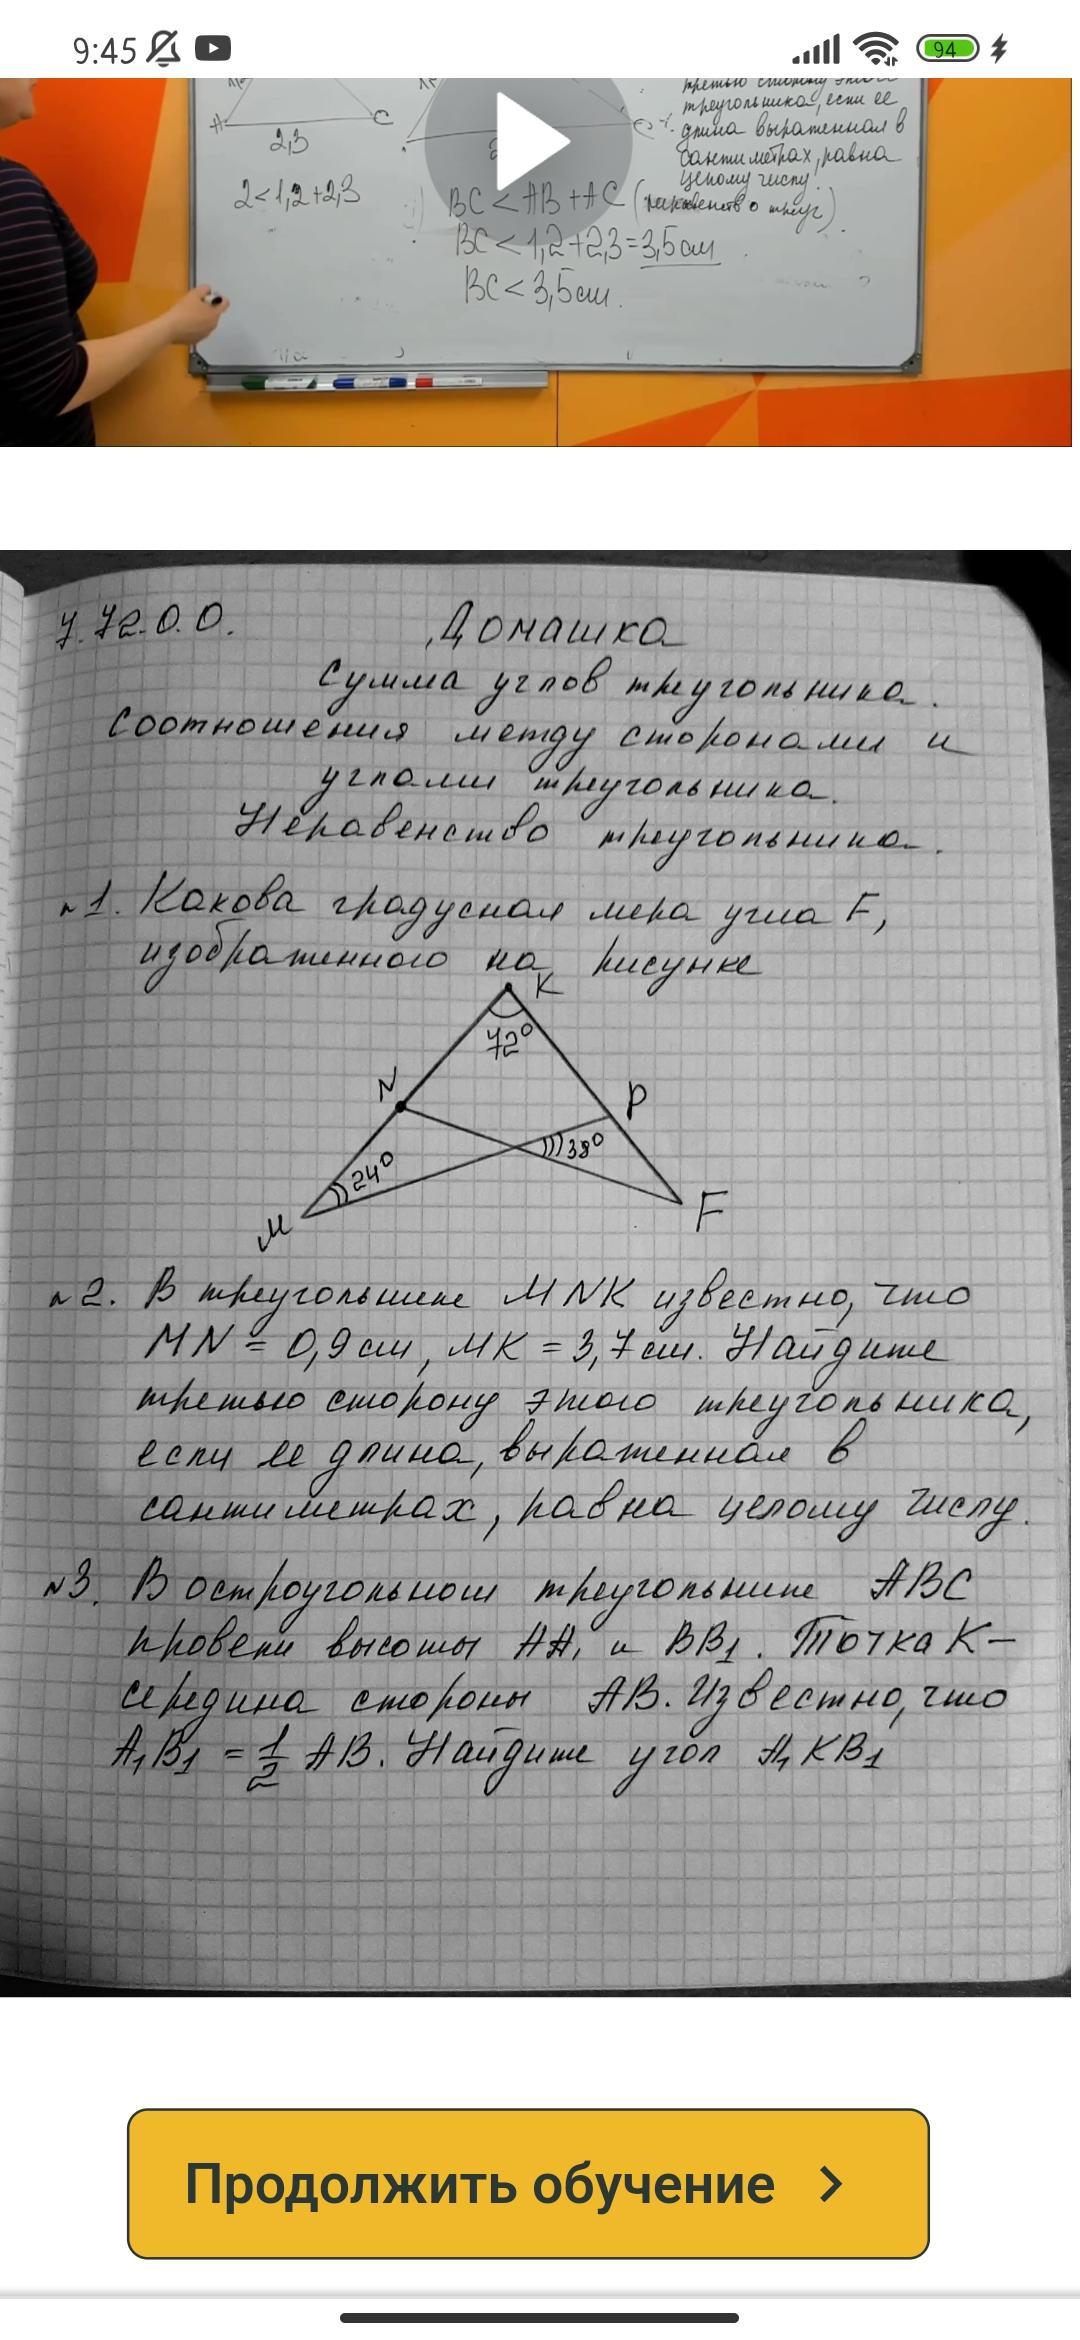 9:45
94
третью сторону этого
треугольника, если ее
длина выраженная в
сантиметрах, равна
целому числу.
A C
2,3
2<1,2+2,3
BC < AB + AC (неравенство треуг)
BC < 1,2+2,3=3,5см
BC < 3,5см.
У.72.0.0.
Домашка
Сумма углов треугольника.
Соотношения между сторонами и
углами треугольника.
Неравенство треугольника.
№1. Какова градусная мера угла F,
изображенного на рисунке
K
72°
N
P
38°
24°
M
F
№2. В треугольнике MNK известно, что
MN = 0,9 см, MK = 3,7 см. Найдите
третью сторону этого треугольника,
если ее длина, выраженная в
сантиметрах, равна целому числу.
№3. В остроугольном треугольнике ABC
провели высоты AA₁ и BB₁. Точка K –
середина стороны AB. Известно, что
A₁B₁ = 1/2 AB. Найдите угол A₁KB₁
Продолжить обучение >